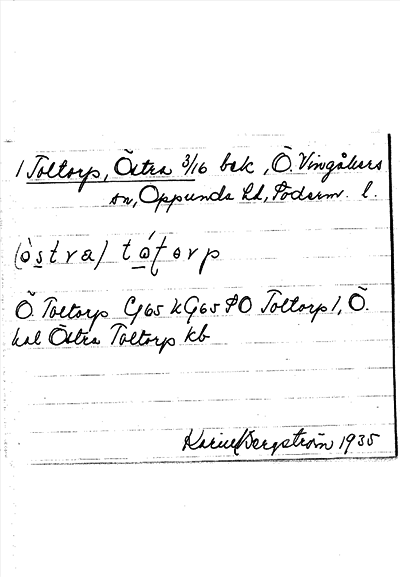 1 Toltorp, Östra 3/16 bsk, Ö. Vingåkers
sn, Oppunda hd, Söderm. l.
(òstra) tótorp
Ö. Toltorp G65 k G65 SO Toltorp 1, Ö.
hal Östra Toltorp kb
Karin Bergström 1935